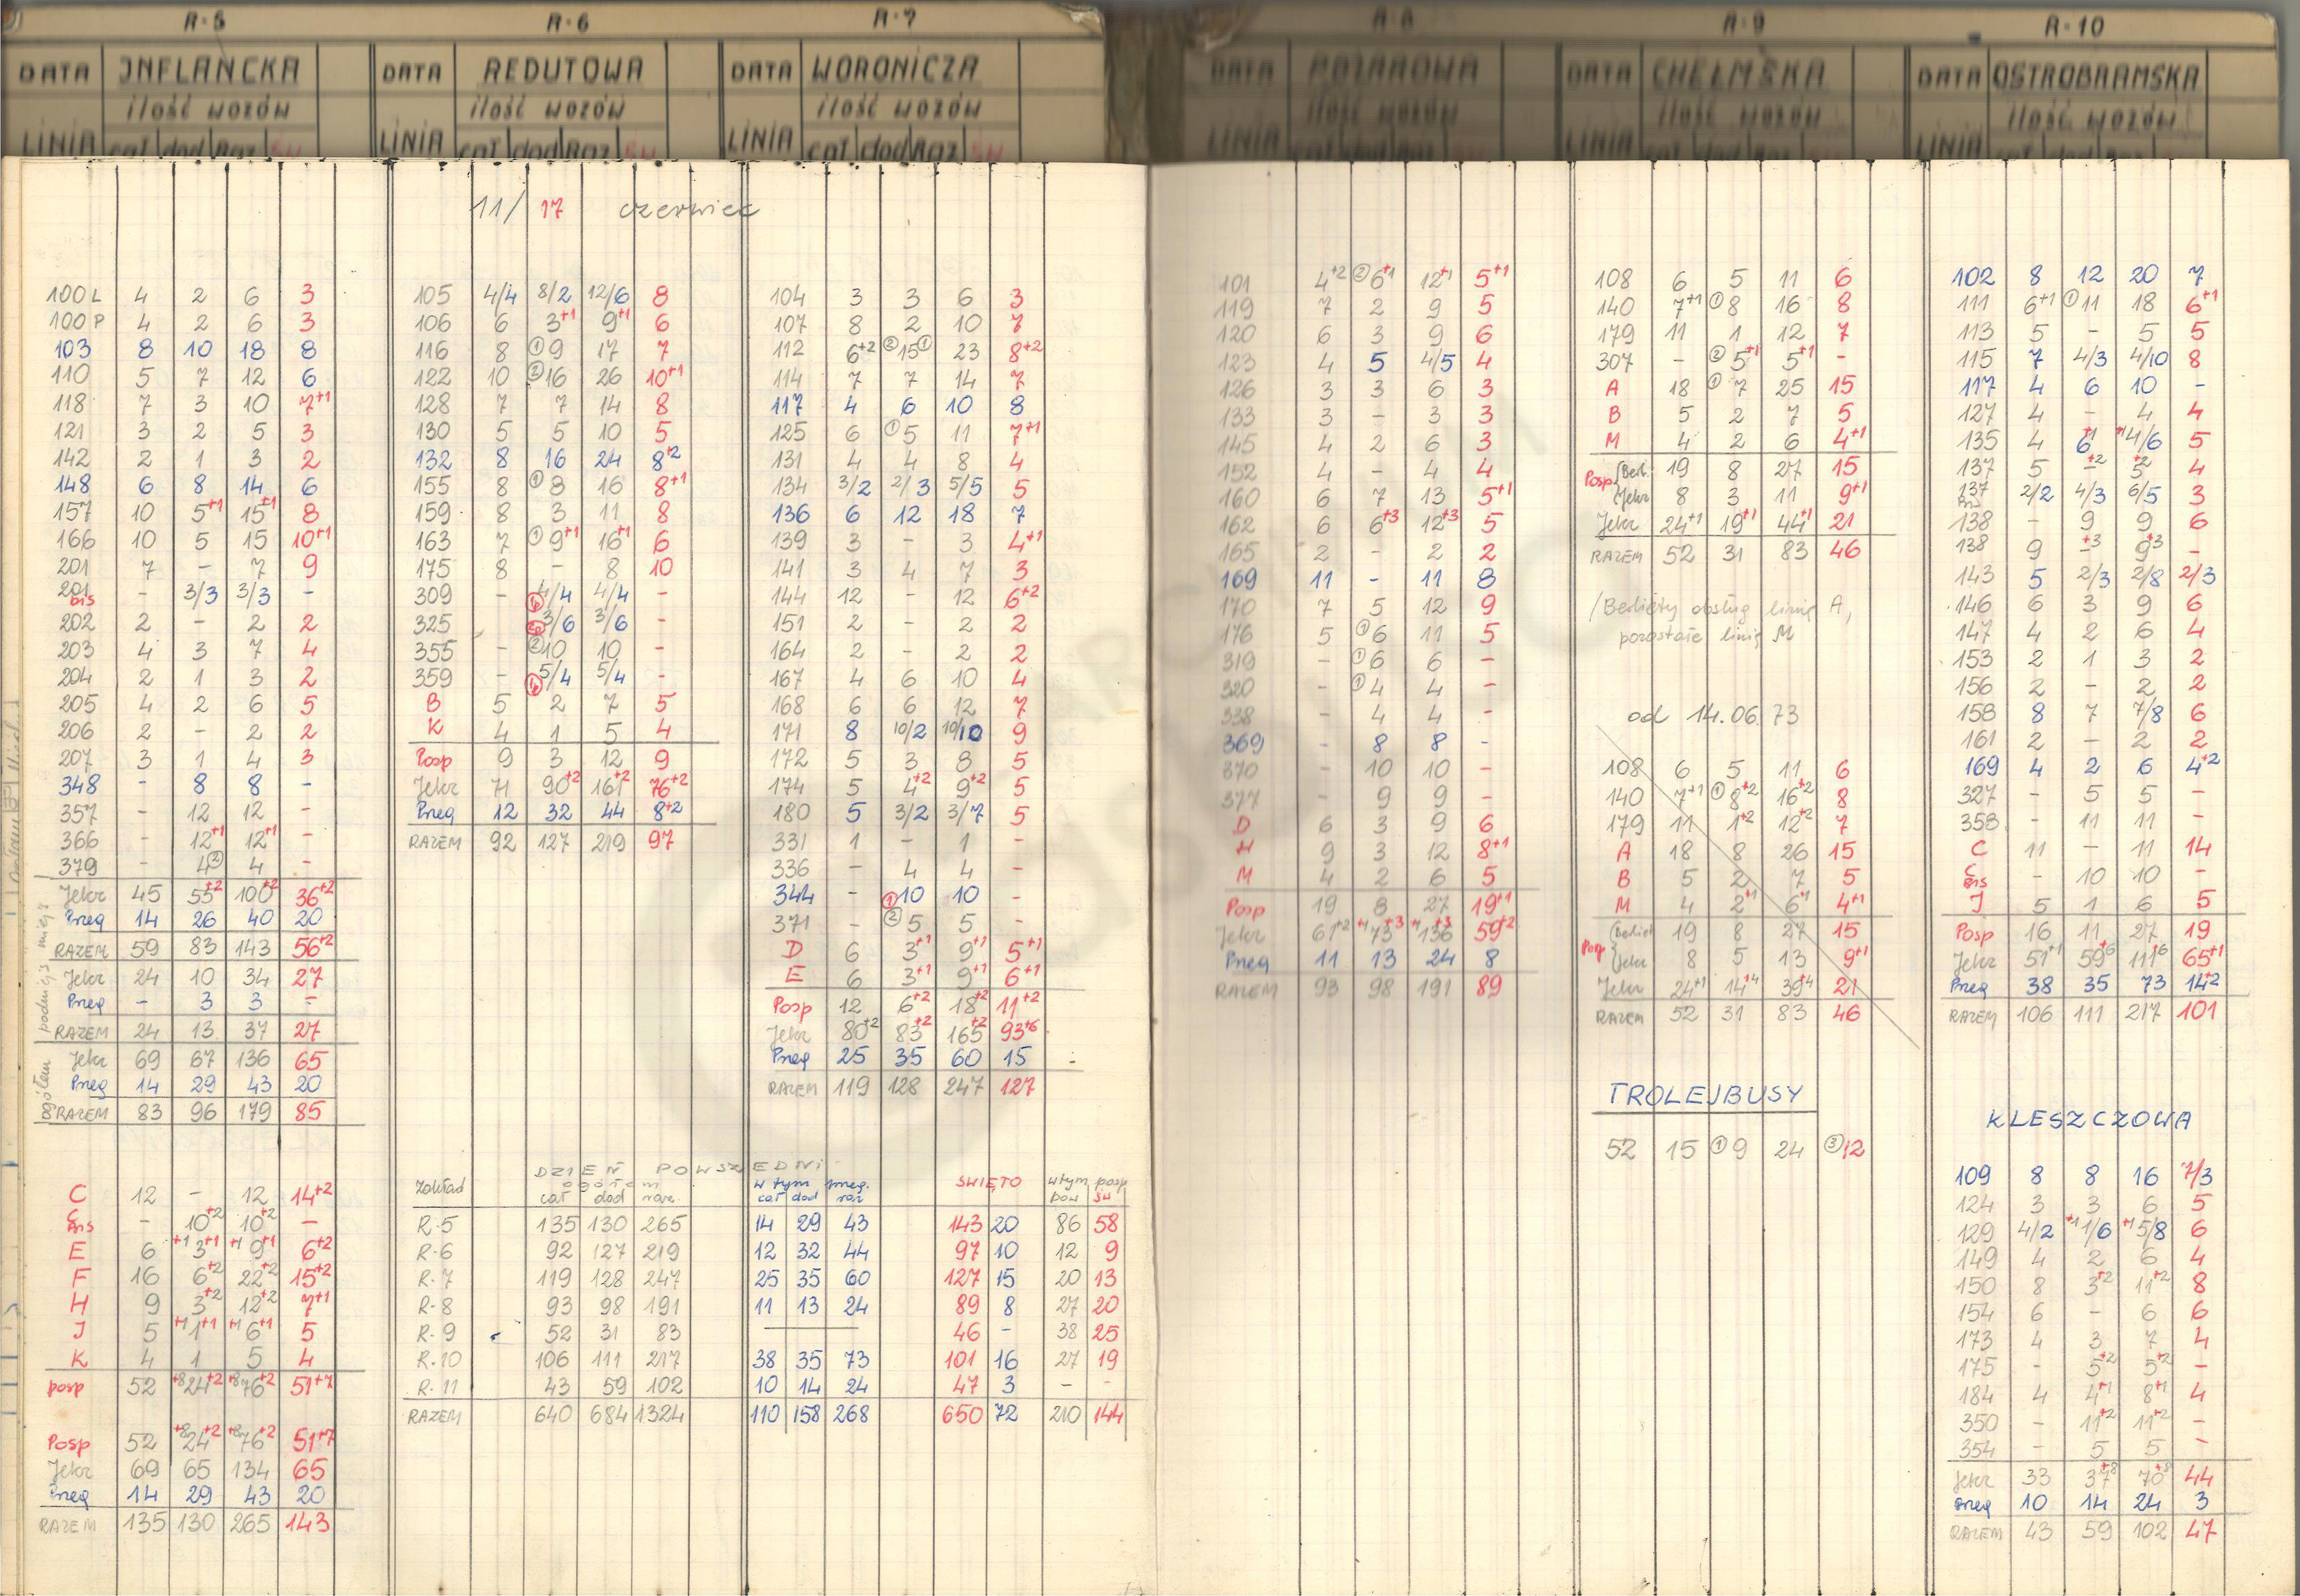 R-5
DATA INFLANCKA
ilość wozów
LINIA cał dod Raz Św
R-6
DATA REDUTOWA
ilość wozów
LINIA cał dod Raz Św
R-7
DATA WORONICZA
ilość wozów
LINIA cał dod Raz Św
R-8
DATA POŻAROWA
ilość wozów
LINIA cał dod Raz
R-9
DATA CHEŁMSKA
ilość wozów
LINIA cał dod Raz
R-10
DATA OSTROBRAMSKA
ilość wozów
LINIA cał dod Raz
11/17 czerwiec
100L 4 2 6 3
100P 4 2 6 3
103 8 10 18 8
110 5 7 12 6
118 7 3 10 7+1
121 3 2 5 3
142 2 1 3 2
148 6 8 14 6
157 10 5+1 15+1 8
166 10 5 15 10+1
201 7 - 7 9
201 bis - 3/3 3/3 -
202 2 - 2 2
203 4 3 7 4
204 2 1 3 2
205 4 2 6 5
206 2 - 2 2
207 3 1 4 3
348 - 8 8 -
357 - 12 12 -
366 - 12+1 12+1 -
379 - 4② 4 -
Jelcz 45 55+2 100+2 36+2
Przeg 14 26 40 20
RAZEM 59 83 143 56+2
Jelcz 24 10 34 27
Przeg - 3 3 -
RAZEM 24 13 37 27
ogółem
Jelcz 69 67 136 65
Przeg 14 29 43 20
RAZEM 83 96 179 85
C 12 - 12 14+2
C bis - 10+2 10+2 -
E 6 +1 3+1 +1 9+1 6+2
F 16 6+2 22+2 15+2
H 9 3+2 12+2 7+1
J 5 +1 1+1 +1 6+1 5
K 4 1 5 4
posp 52 +8 24+2 +8 76+2 51+7
Posp 52 +8 24+2 +8 76+2 51+7
Jelcz 69 65 134 65
Przeg 14 29 43 20
RAZEM 135 130 265 143
105 4/4 8/2 12/6 8
106 6 3+1 9+1 6
116 8 ①9 17 7
122 10 ②16 26 10+1
128 7 7 14 8
130 5 5 10 5
132 8 16 24 8+2
155 8 ①8 16 8+1
159 8 3 11 8
163 7 ①9+1 16+1 6
175 8 - 8 10
309 - 4/4 4/4 -
325 - 3/6 3/6 -
355 - ②10 10 -
359 - 5/4 5/4 -
B 5 2 7 5
K 4 1 5 4
Posp 9 3 12 9
Jelcz 71 90+2 161+2 76+2
Przeg 12 32 44 8+2
RAZEM 92 127 219 97
104 3 3 6 3
107 8 2 10 7
112 6+2 ②15① 23 8+2
114 7 7 14 7
117 4 6 10 8
125 6 ①5 11 7+1
131 4 4 8 4
134 3/2 2/3 5/5 5
136 6 12 18 7
139 3 - 3 4+1
141 3 4 7 3
144 12 - 12 6+2
151 2 - 2 2
164 2 - 2 2
167 4 6 10 4
168 6 6 12 7
171 8 10/2 10/10 9
172 5 3 8 5
174 5 4+2 9+2 5
180 5 3/2 3/7 5
331 1 - 1 -
336 - 4 4 -
344 - ①10 10 -
371 - ②5 5 -
D 6 3+1 9+1 5+1
E 6 3+1 9+1 6+1
Posp 12 6+2 18+2 11+2
Jelcz 80+2 83+2 165+2 93+6
Przeg 25 35 60 15
RAZEM 119 128 247 127
DZIEŃ POWSZEDNI
Zakład ogółem w tym przeg. ŚWIĘTO w tym posp
cał dod raz. cał dod raz pow św
R-5 135 130 265 14 29 43 143 20 86 58
R-6 92 127 219 12 32 44 97 10 12 9
R-7 119 128 247 25 35 60 127 15 20 13
R-8 93 98 191 11 13 24 89 8 27 20
R-9 52 31 83 46 - 38 25
R-10 106 111 217 38 35 73 101 16 27 19
R-11 43 59 102 10 14 24 47 3 - -
RAZEM 640 684 1324 110 158 268 650 72 210 144
101 4+2 ②6+1 12+1 5+1
119 7 2 9 5
120 6 3 9 6
123 4 5 4/5 4
126 3 3 6 3
133 3 - 3 3
145 4 2 6 3
152 4 - 4 4
160 6 7 13 5+1
162 6 6+3 12+3 5
165 2 - 2 2
169 11 - 11 8
170 7 5 12 9
176 5 ①6 11 5
319 - ①6 6 -
320 - ①4 4 -
338 - 4 4 -
369 - 8 8 -
370 - 10 10 -
377 - 9 9 -
D 6 3 9 6
H 9 3 12 8+1
M 4 2 6 5
Posp 19 8 27 19+1
Jelcz 61+2 +1 73+3 +1 136+3 59+2
Przeg 11 13 24 8
RAZEM 93 98 191 89
108 6 5 11 6
140 7+1 ①8 16 8
179 11 1 12 7
307 - ②5+1 5+1 -
A 18 ①7 25 15
B 5 2 7 5
M 4 2 6 4+1
Posp { Berl. 19 8 27 15
Jelcz 8 3 11 9+1
Jelcz 24+1 19+1 44+1 21
RAZEM 52 31 83 46
/Berliety obsług linię A,
pozostałe linię M
od 14.06.73
108 6 5 11 6
140 7+1 ①8+2 16+2 8
179 11 1+2 12+2 7
A 18 8 26 15
B 5 2 7 5
M 4 2+1 6+1 4+1
Posp { Berliet 19 8 27 15
Jelcz 8 5 13 9+1
Jelcz 24+1 14+4 39+4 21
RAZEM 52 31 83 46
TROLEJBUSY
52 15 ①9 24 ③12
102 8 12 20 7
111 6+1 ①11 18 6+1
113 5 - 5 5
115 7 4/3 4/10 8
117 4 6 10 -
127 4 - 4 4
135 4 6+1 +1 4/6 5
137 5 -+2 5+2 4
137 bis 2/2 4/3 6/5 3
138 - 9 9 6
138 9 -+3 9+3 -
143 5 2/3 2/8 2/3
146 6 3 9 6
147 4 2 6 4
153 2 1 3 2
156 2 - 2 2
158 8 7 7/8 6
161 2 - 2 2
169 4 2 6 4+2
327 - 5 5 -
358 - 11 11 -
C 11 - 11 14
C bis - 10 10 -
J 5 1 6 5
Posp 16 11 27 19
Jelcz 51+1 59+6 111+6 65+1
Przeg 38 35 73 14+2
RAZEM 106 111 217 101
KLESZCZOWA
109 8 8 16 7/3
124 3 3 6 5
129 4/2 +1 1/6 +1 5/8 6
149 4 2 6 4
150 8 3+2 11+2 8
154 6 - 6 6
173 4 3 7 4
175 - 5+2 5+2 -
184 4 4+1 8+1 4
350 - 11+2 11+2 -
354 - 5 5 -
Jelcz 33 37+8 70+8 44
Przeg 10 14 24 3
RAZEM 43 59 102 47